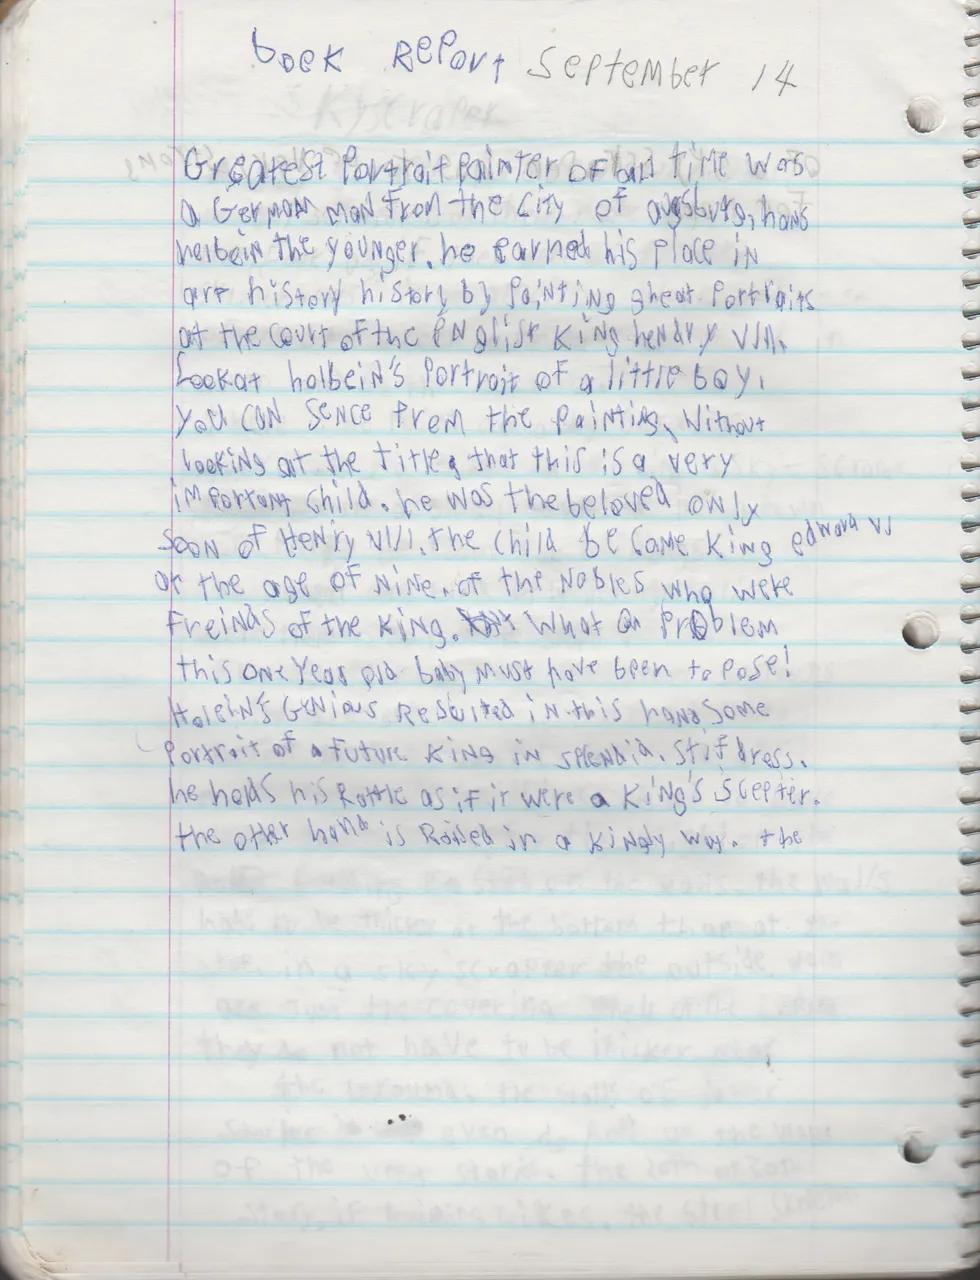 book Report September 14
Greatest Portrait Painter of all time was
a German man from the City of augsburg, hans
holbein the younger. he earned his place in
art history history by Painting gheat Portraits
at the court of the English King hendry VIII.
Look at holbein's Portrait of a little boy.
you can sence from the painting, without
looking at the title, that this is a very
important child. he was the beloved only
soon of Henry VIII. the child became King edward VI
at the age of Nine. of the Nobles who were
Freinds of the King. What an Problem
this one Year old baby must have been to Pose!
Holein's Genious Resulted in this handsome
Portrait of a future King in splendid. stif dress.
he holds his Rattle as if it were a King's Scepter.
the other hand is Raised in a Kingly way. the